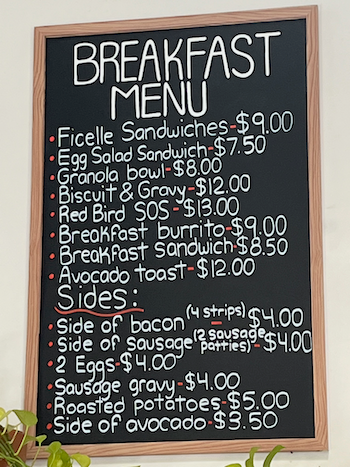 BREAKFAST
MENU
• Ficelle Sandwiches-$9.00
• Egg Salad Sandwich-$7.50
• Granola bowl-$8.00
• Biscuit & Gravy-$12.00
• Red Bird SOS-$13.00
• Breakfast burrito-$9.00
• Breakfast Sandwich-$8.50
• Avocado toast-$12.00
Sides:
• Side of bacon (4 strips)-$4.00
• Side of sausage (2 sausage patties)-$4.00
• 2 Eggs-$4.00
• Sausage gravy-$4.00
• Roasted potatoes-$5.00
• Side of avocado-$3.50